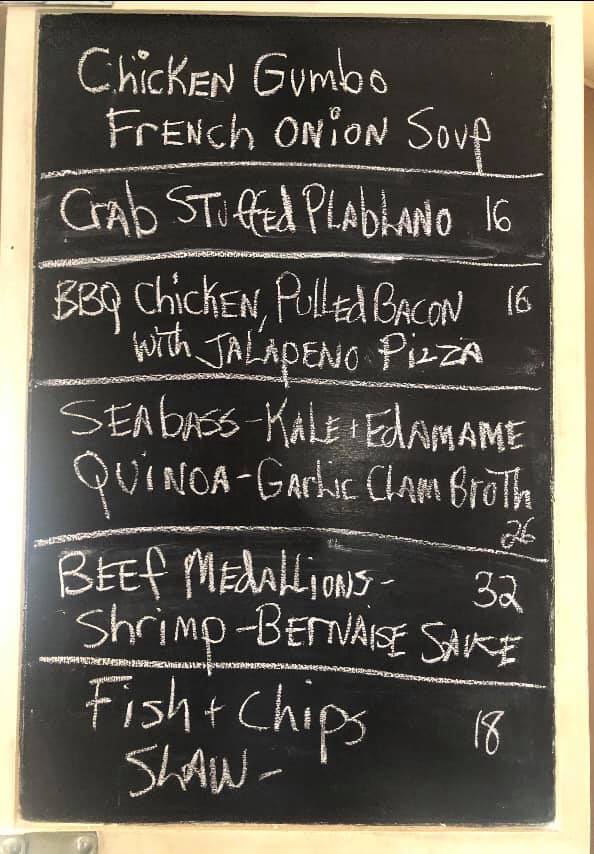 Chicken Gumbo
French Onion Soup
Crab Stuffed Plablano 16
BBQ Chicken, Pulled Bacon 16
with Jalapeno Pizza
Seabass - Kale + Edamame
Quinoa - Garlic Clam Broth
26
Beef Medallions - 32
Shrimp - Bernaise Sauce
Fish + Chips 18
Slaw -